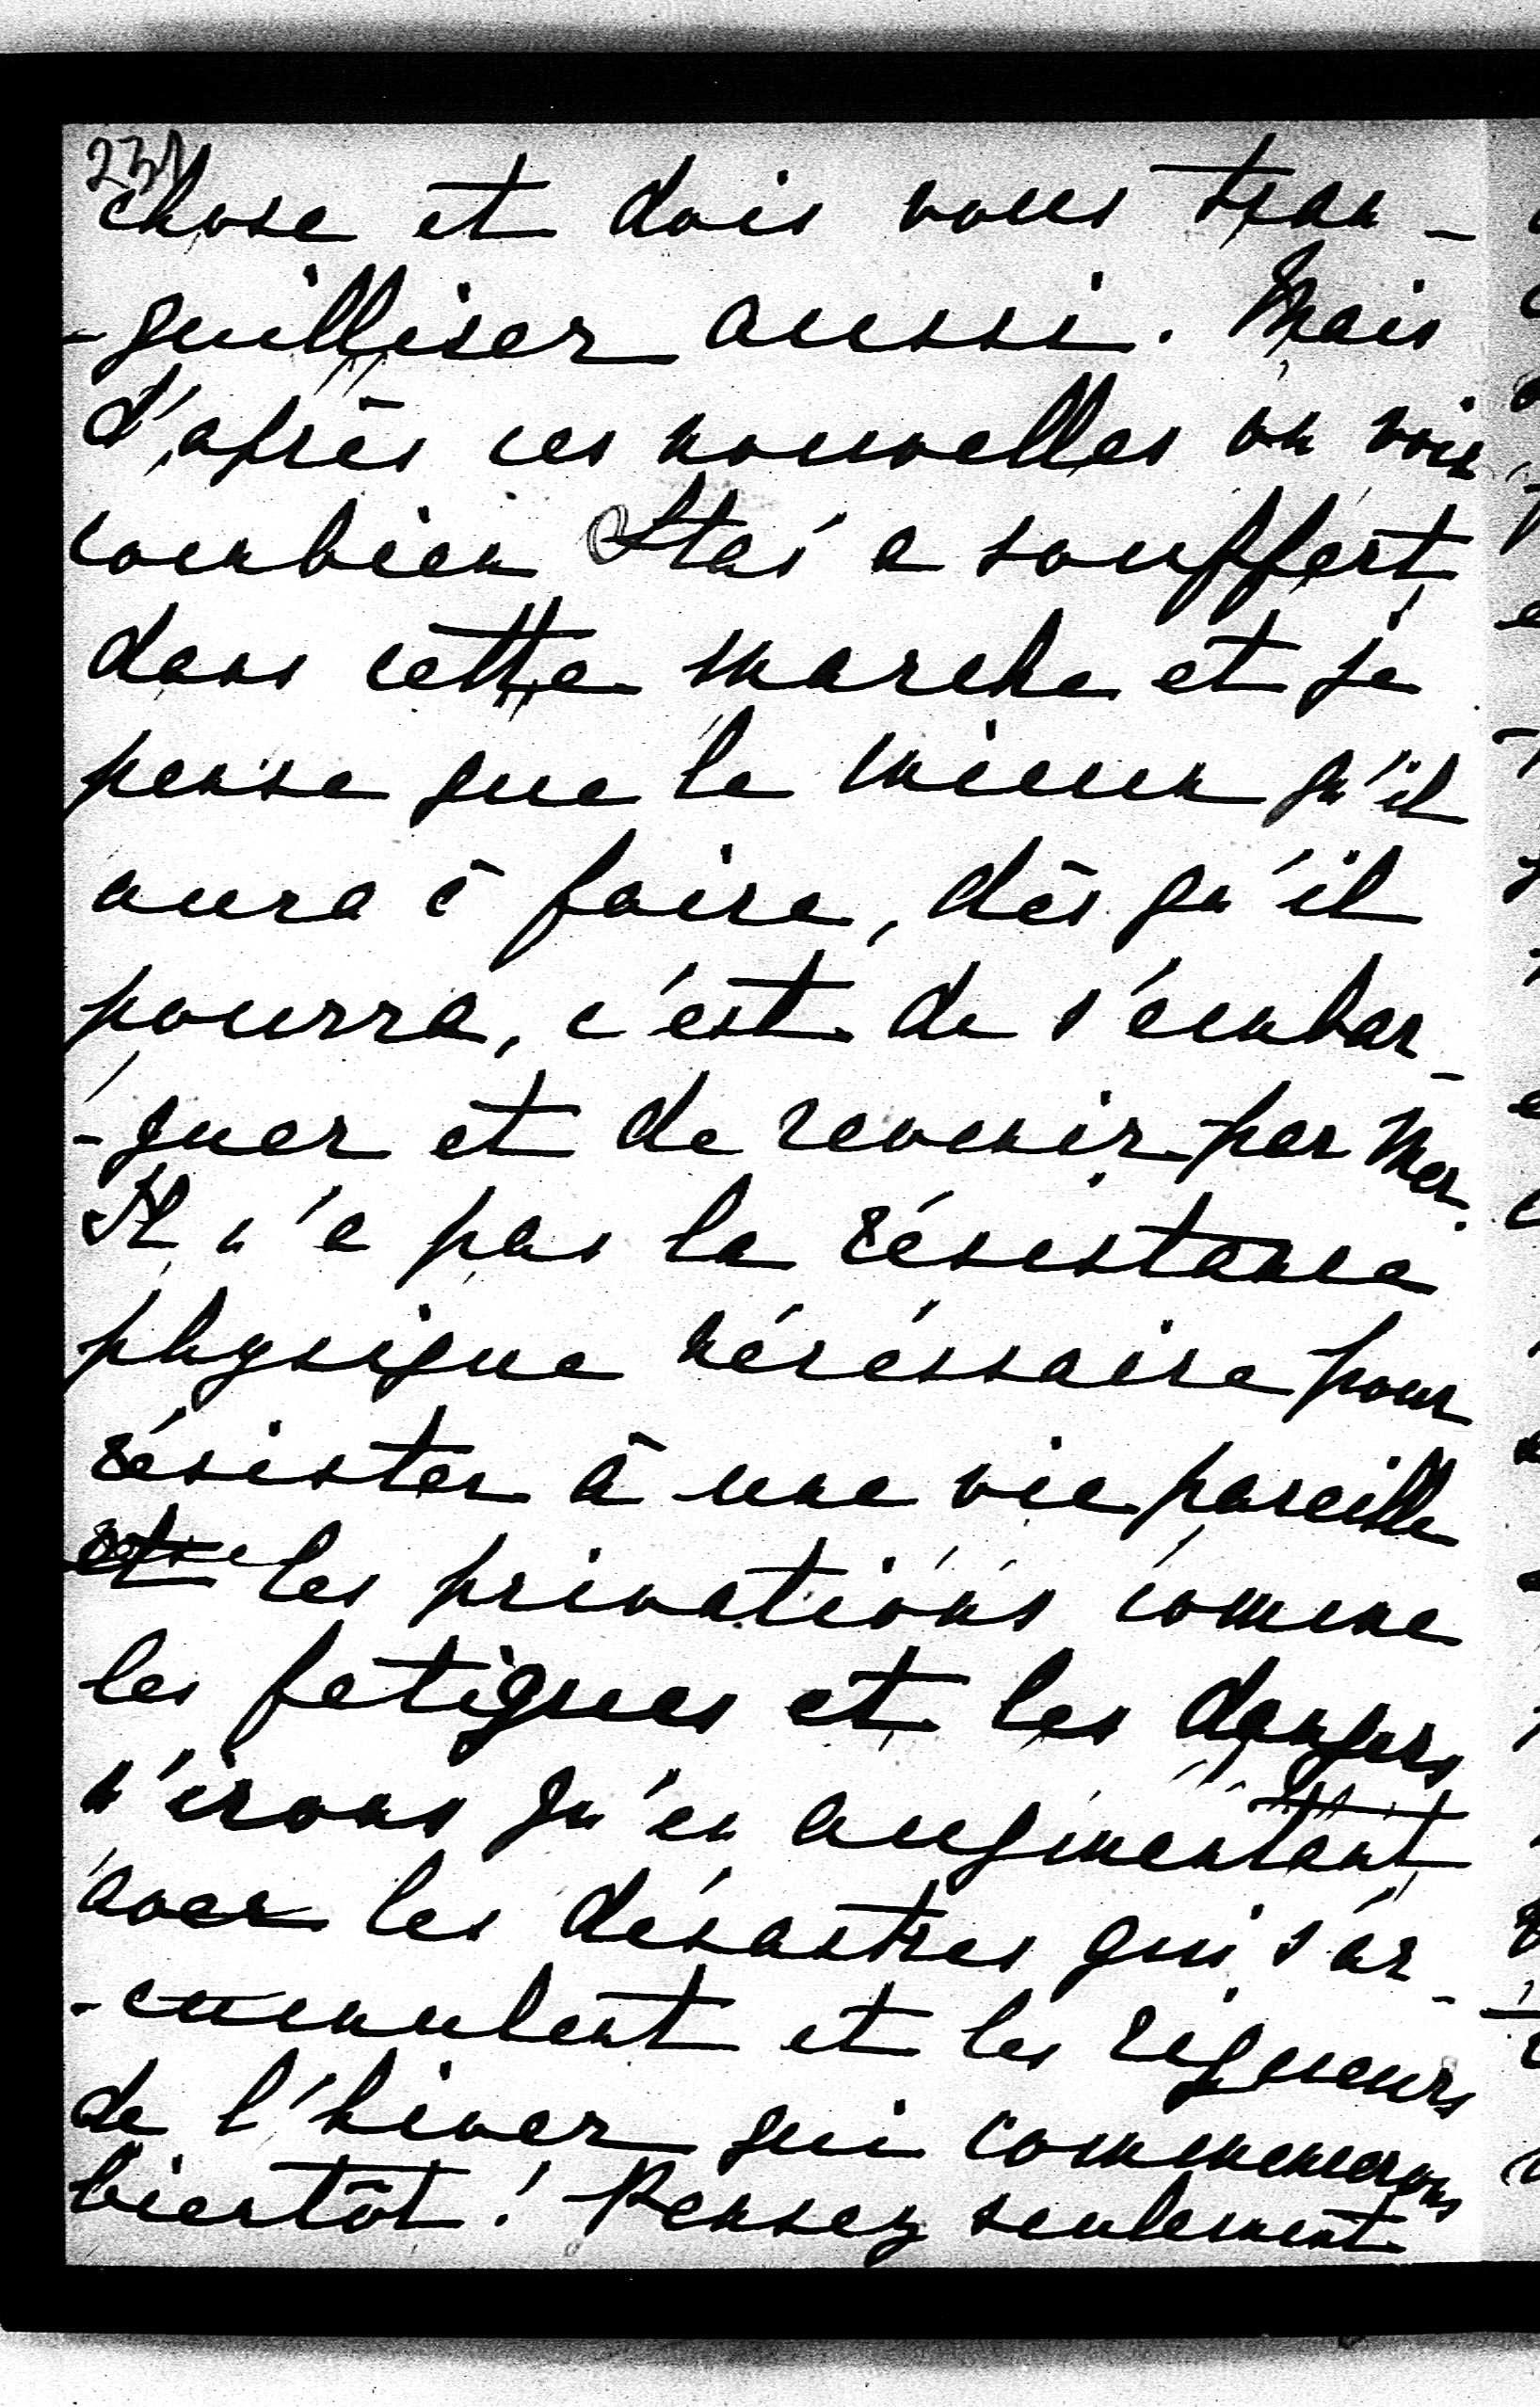 231
chose et dois vous tran-
-quilliser aussi. Mais
d'après ces nouvelles on voit
combien Stas' a souffert
dans cette marche et je
pense que le mieux qu'il
aura à faire, dès qu'il
pourra, c'est de s'embar-
-quer et de revenir par mer.
Il n'a pas la résistance
physique nécéssaire pour
résister à une vie pareille
et les privations comme
les fatigues et les dangers
n'irons qu'en augmentant
avec les désastres qui s'ac-
-cumulent et les rigueurs
de l'hiver qui commencerons
bientôt! Pensez seulement